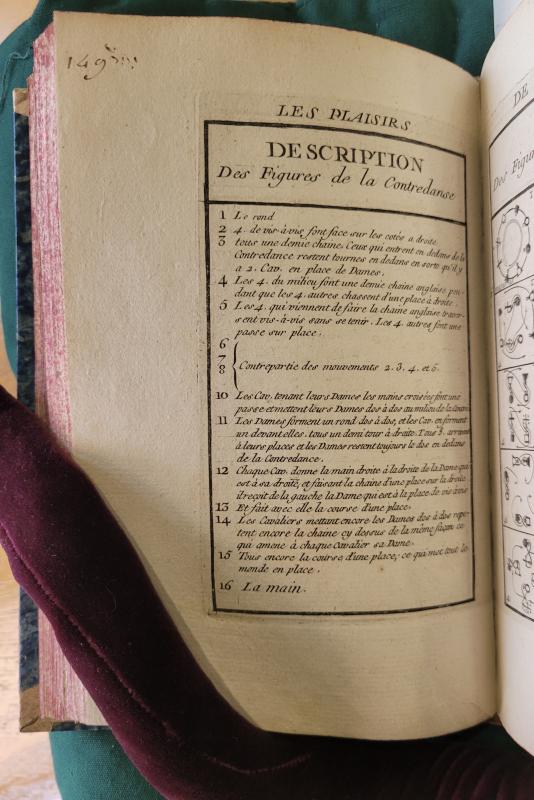 149
LES PLAISIRS
DESCRIPTION
Des Figures de la Contredanse
1 Le rond
2 4. de vis-à-vis font face sur les cotés a droite
3 tous une demie chaine. Ceux qui entrent en dedans de la
Contredance restent tournes en dedans en sorte qu'il y
a 2. Cav. en place de Dames.
4 Les 4. du milieu font une demie chaine anglaise pen-
dant que les 4. autres chassent d'une place à droite.
5 Les 4. qui viennent de faire la chaine anglaise traver-
sent vis-à-vis sans se tenir. Les 4. autres font une
passe sur place.
6
7
8 Contrepartie des mouvements 2. 3. 4. et 5.
10 Les Cav. tenant leurs Dames les mains croisées font une
passe et mettent leurs Dames dos à dos au milieu de la
11 Les Dames forment un rond dos à dos, et les Cav. en forment
un devant elles. tous un demi tour à droite. Tous
à leurs places et les Dames restent toujours le dos en dedans
de la Contredance.
12 Chaque Cav. donne la main droite à la droite de la Dame qui
est à sa droite, et faisant la chaine d'une place sur la droite
il reçoit de la gauche la Dame qui est à la place de vis à vis
13 Et fait avec elle la course d'une place.
14 Les Cavaliers mettant encore les Dames dos à dos repe-
tent encore la chaine cy dessus de la même façon ce
qui amene à chaque Cavalier sa Dame.
15 Tous encore la course d'une place; ce qui met tout le
monde en place.
16 La main.
DE
Des Figur